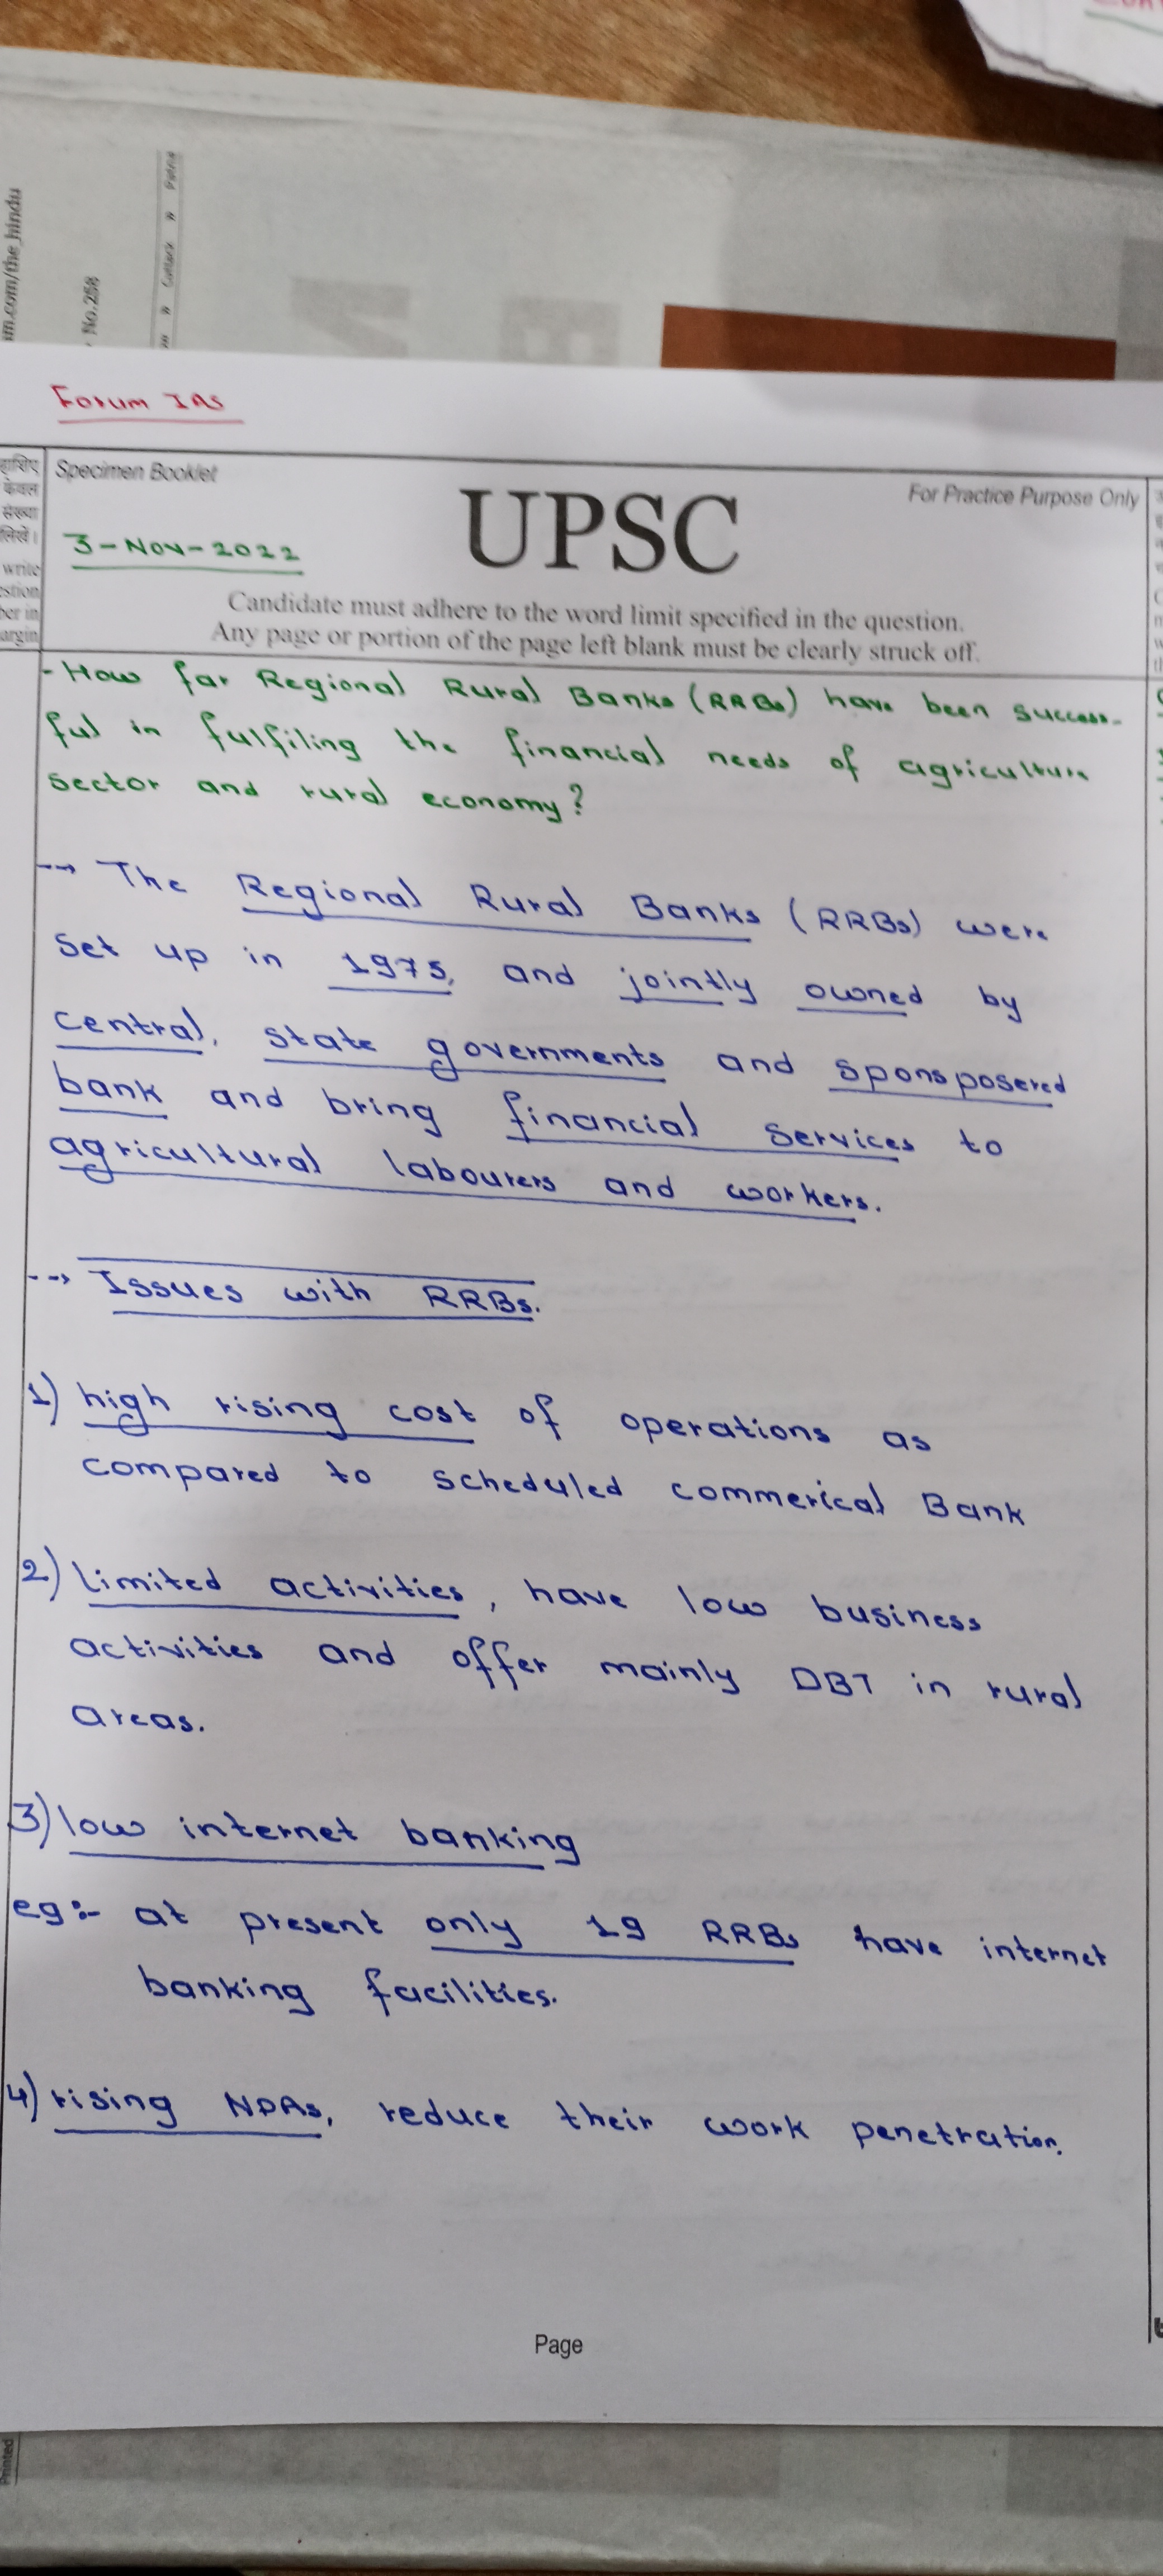 im.com/the_hindu
No.258
Cuttack
Patna
Forum IAS
Specimen Booklet
For Practice Purpose Only
UPSC
3-Nov-2022
केवल
संख्या
लिखें।
write
estion
ber in
argin
Candidate must adhere to the word limit specified in the question.
Any page or portion of the page left blank must be clearly struck off.
- How far Regional Rural Banks (RRBs) have been success-
ful in fulfiling the financial needs of agriculture
sector and rural economy?
--→ The Regional Rural Banks (RRBs) were
set up in 1975, and jointly owned by
central, state governments and sponsposered
bank and bring financial services to
agricultural labourers and workers.
--→ Issues with RRBs.
1) high rising cost of operations as
compared to scheduled commerical Bank
2) limited activities, have low business
activities and offer mainly DBT in rural
areas.
3) low internet banking
eg:- at present only 19 RRBs have internet
banking facilities.
4) rising NPAs, reduce their work penetration.
Page
Printed